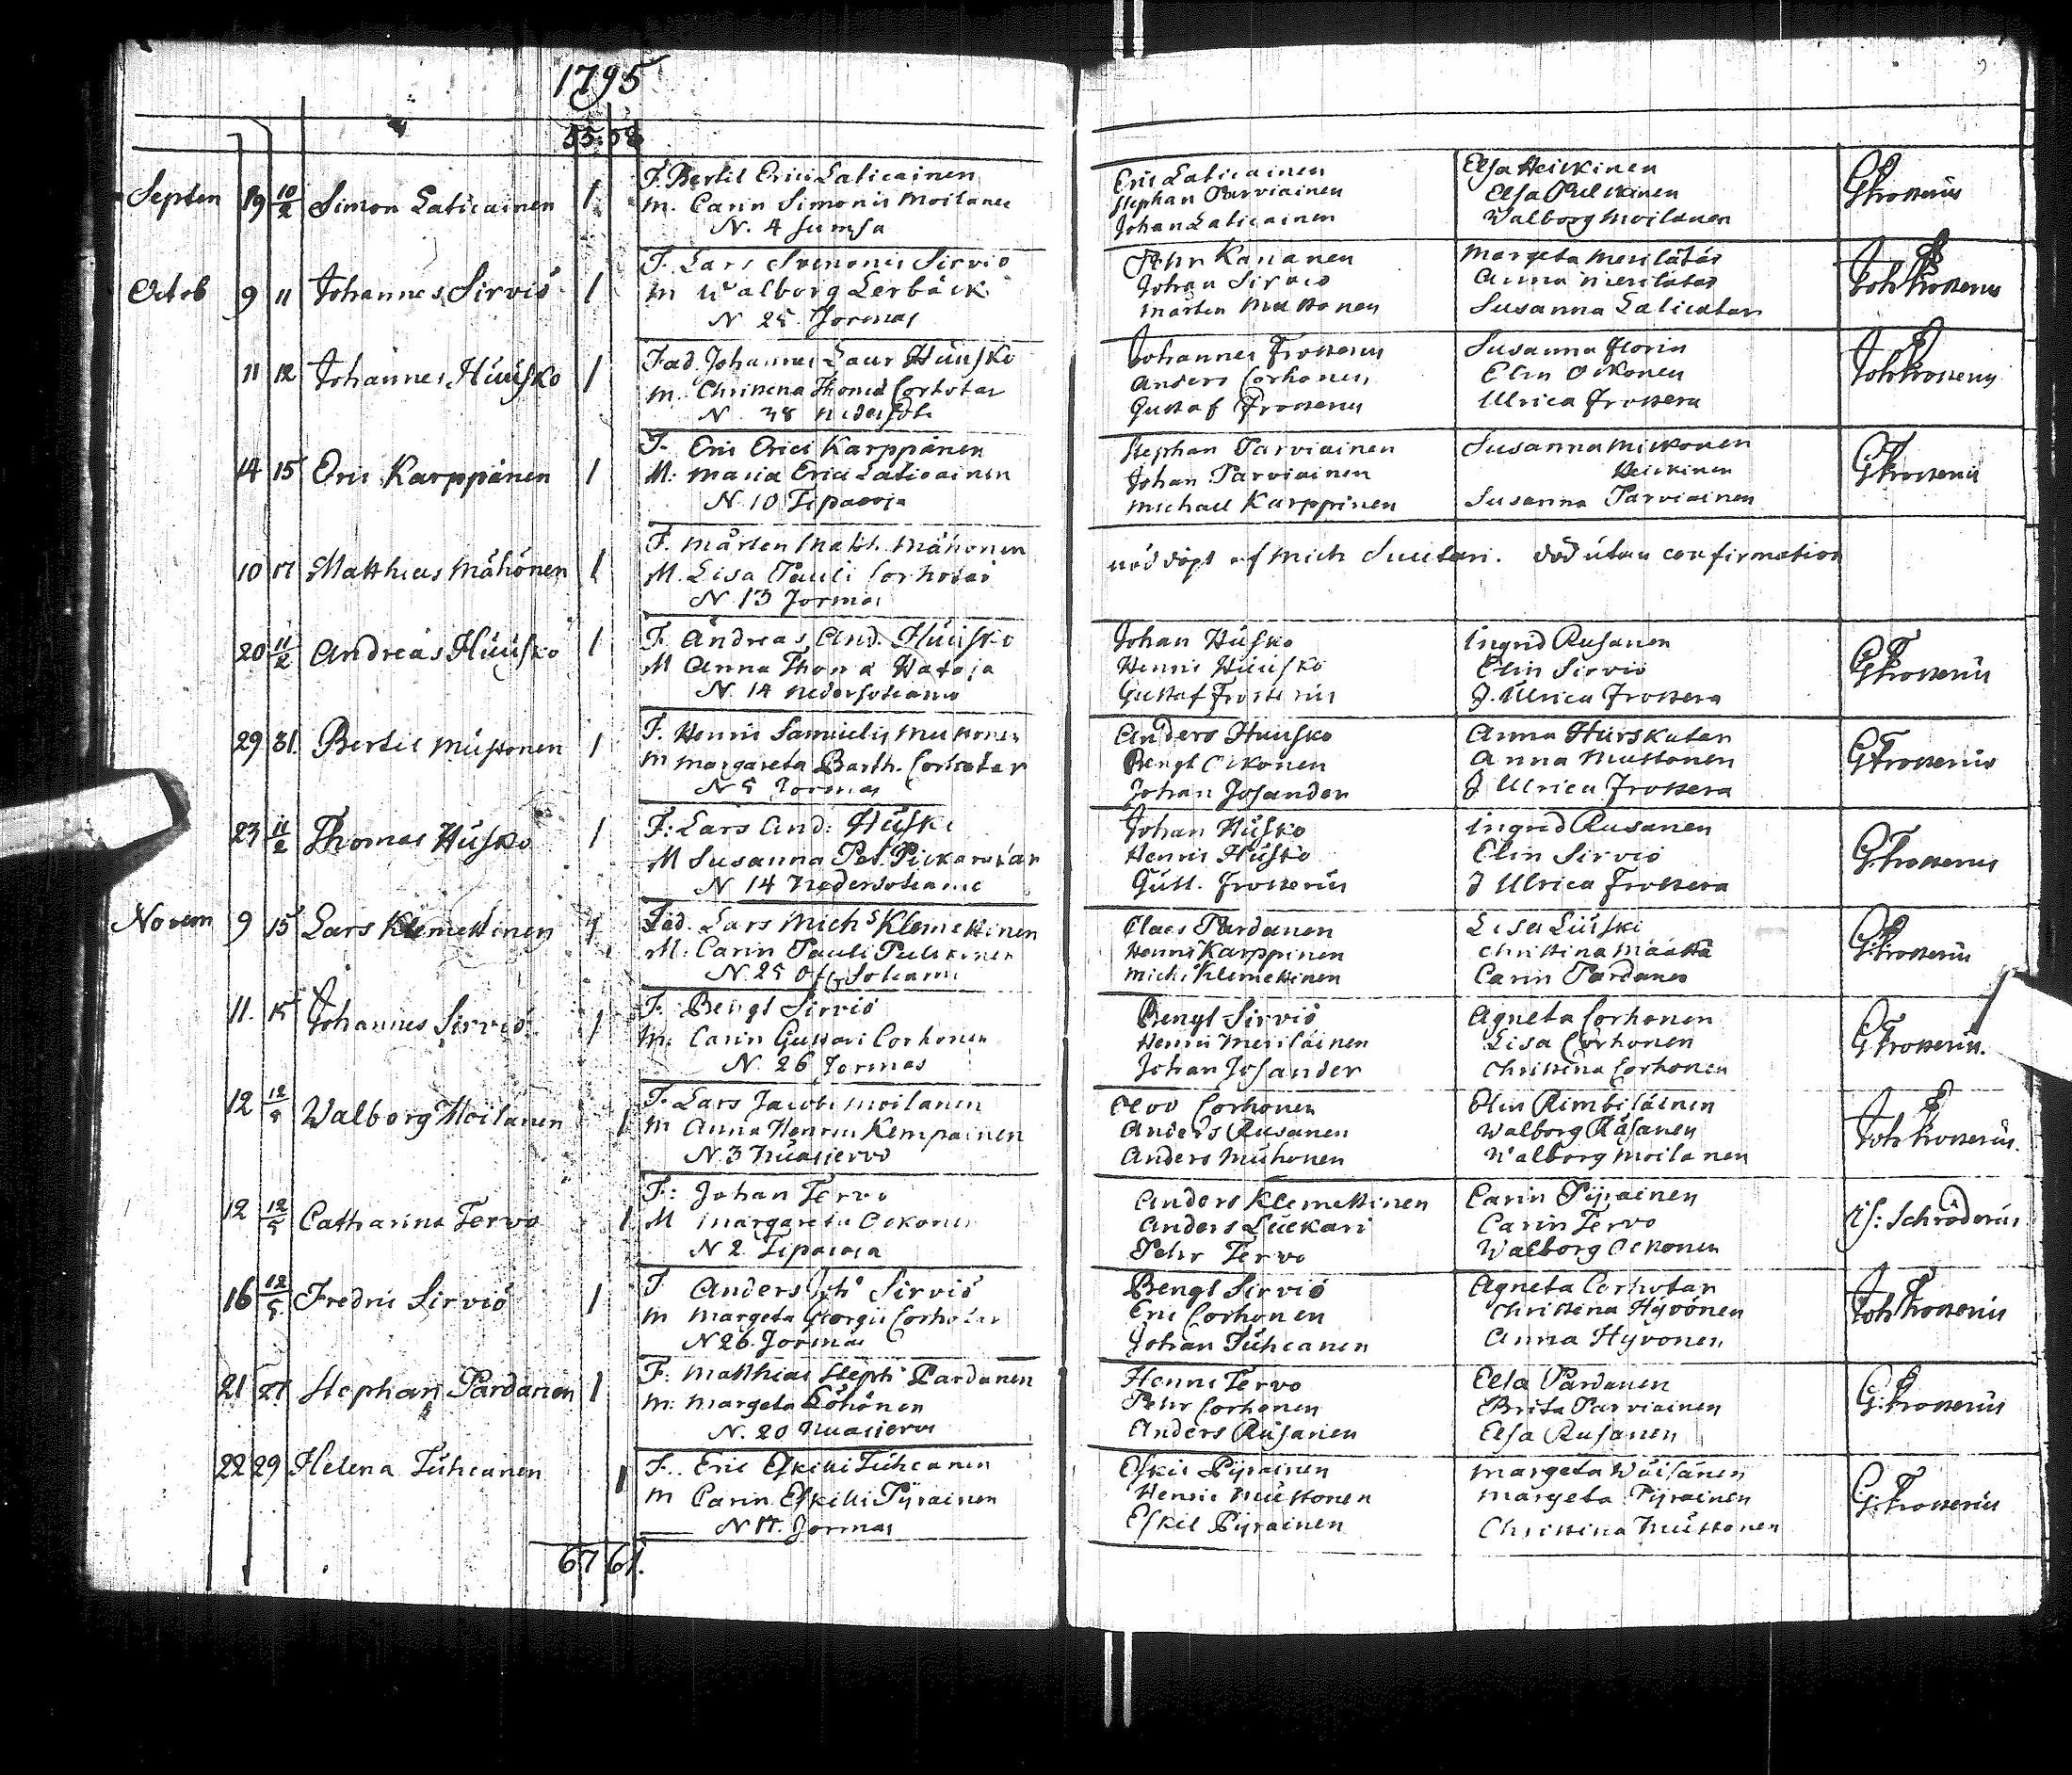 1795
55. 58
Septen 19 10/2 Simon Laticainen 1
F. Bertil Erici Laticainen
m. Carin Simonis Moilanen
N. 4 Sumsa
Eric Laticainen
Stephan Parviainen
Johan Laticainen
Elsa Heickinen
Elsa Pulckinen
Walborg Moilanen
G Frosterus
Octob 9 11 Johannes Sirviö 1
F. Lars Simonis Sirviö
m Walborg Lerbäck
N 25 Jormas
Pehr Kananen
Johan Sirviö
Mårten Mustonen
Margeta Merilätär
Anna Merilätar
Susanna Laticatar
Joh Frosterus
11 12 Johannes Huusko 1
Fad. Johannes Laur Huusko
m. Christena Thomæ Corhotar
N. 38
Johannes Frosterus
Anders Corhonen
Gustaf Frosterus
Susanna Florin
Elin Ockonen
Ulrica Frostera
Joh Frosterus
14 15 Eric Karppänen 1
F. Eric Erici Karppänen
M: Maria Erici Laticainen
N. 10 Tipasoja
Stephan Parviainen
Johan Parviainen
Michael Karppinen
Susanna Mickonen
Heickinen
Susanna Parviainen
G Frosterus
10 17 Matthias Mähönen 1
F. Mårten Matth. Mähönen
M. Lisa Pauli Corhotar
N. 13 Jormas
nöd döpt af Mich Suutari. död utan confirmation
20 11/2 Andreas Huusko 1
F. Andreas And. Huusko
M Anna Thom
N. 14 Nedersotcamo
Johan Husko
Henric Huusko
Gustaf Frosterus
Ingrid Rusanen
Elin Sirviö
J. Ulrica Frostera
G Frosterus
29 31. Bertil Mustonen 1
F. Henric Samuelis Mustonen
m Margareta Barth. Corhotar
N 5 Jormas
Anders Huusko
Bengt Ockonen
Johan Josander
Anna Hurskatar
Anna Mustonen
J Ulrica Frostera
G Frosterus
23 11/2 Thomas Husko 1
F: Lars And: Husko
M Susanna Pet. Pickaraitar
N 14 Nedersotcamo
Johan Husko
Henric Husko
Gust. Frosterus
Ingrid Rusanen
Elin Sirviö
J Ulrica Frostera
G. Frosterus
Novem 9 15 Lars Klemettinen 1
Fad. Lars Mich:s Klemettinen
M. Carin Pauli Pulckinen
N. 25 Öfr Sotcamo
Claes Pardanen
Henric Karppinen
Mich: Klemettinen
Lisa Liuski
Christina Määttä
Carin Pardanen
G: Frosterus
11. 15 Johannes Sirviö 1
F: Bengt Sirviö
m. Carin Gustavi Corhonen
N. 26 Jormas
Bengt Sirviö
Henric Meriläinen
Johan Josander
Agneta Corhonen
Lisa Corhonen
Christina Corhonen
G Frosterus.
12 12/5 Walborg Moilanen 1
F. Lars Jacobi Moilanen
m Anna Henrici Kempainen
N. 3 Nuasjervi
Olov Corhonen
Anders Rusanen
Anders Muhonen
Elin Rimbiläinen
Walborg Räsanen
Walborg Moilanen
Joh Frosterus.
12 12/5 Catharina Tervo 1
F: Johan Tervo
M Margareta Ockonen
N 2. Tipasoja
Anders Klemettinen
Anders Luckari
Pehr Tervo
Carin Pijrainen
Carin Tervo
Walborg Ockonen
Is: Schröderus
16 12/5 Fredric Sirviö 1
F Anders Joh:s Sirviö
m Margeta Georgii Corhotar
N 26. Jormas
Bengt Sirviö
Eric Corhonen
Johan Tuhcanen
Agneta Corhotar
Christina Hyvönen
Anna Hyvonen
Joh Frosterus
21 27 Stephan Pardanen 1
F: Matthias Steph: Pardanen
m: Margeta Köhönen
N. 20 Nuasjervi
Henric Tervo
Pehr Corhonen
Anders Rusanen
Elsa Pardanen
Brita Parviainen
Elsa Rusanen
G: Frosterus
22 29 Helena Tuhcanen 1
F. Eric Eskilli Tuhcanen
m Carin Eskilli Pijrainen
N 17. Jormas
Eskil Pijrainen
Henric Mustonen
Eskil Pijrainen
Margeta Wäisänen
Margeta Pijrainen
Christina Mustonen
G: Frosterus
67 61.